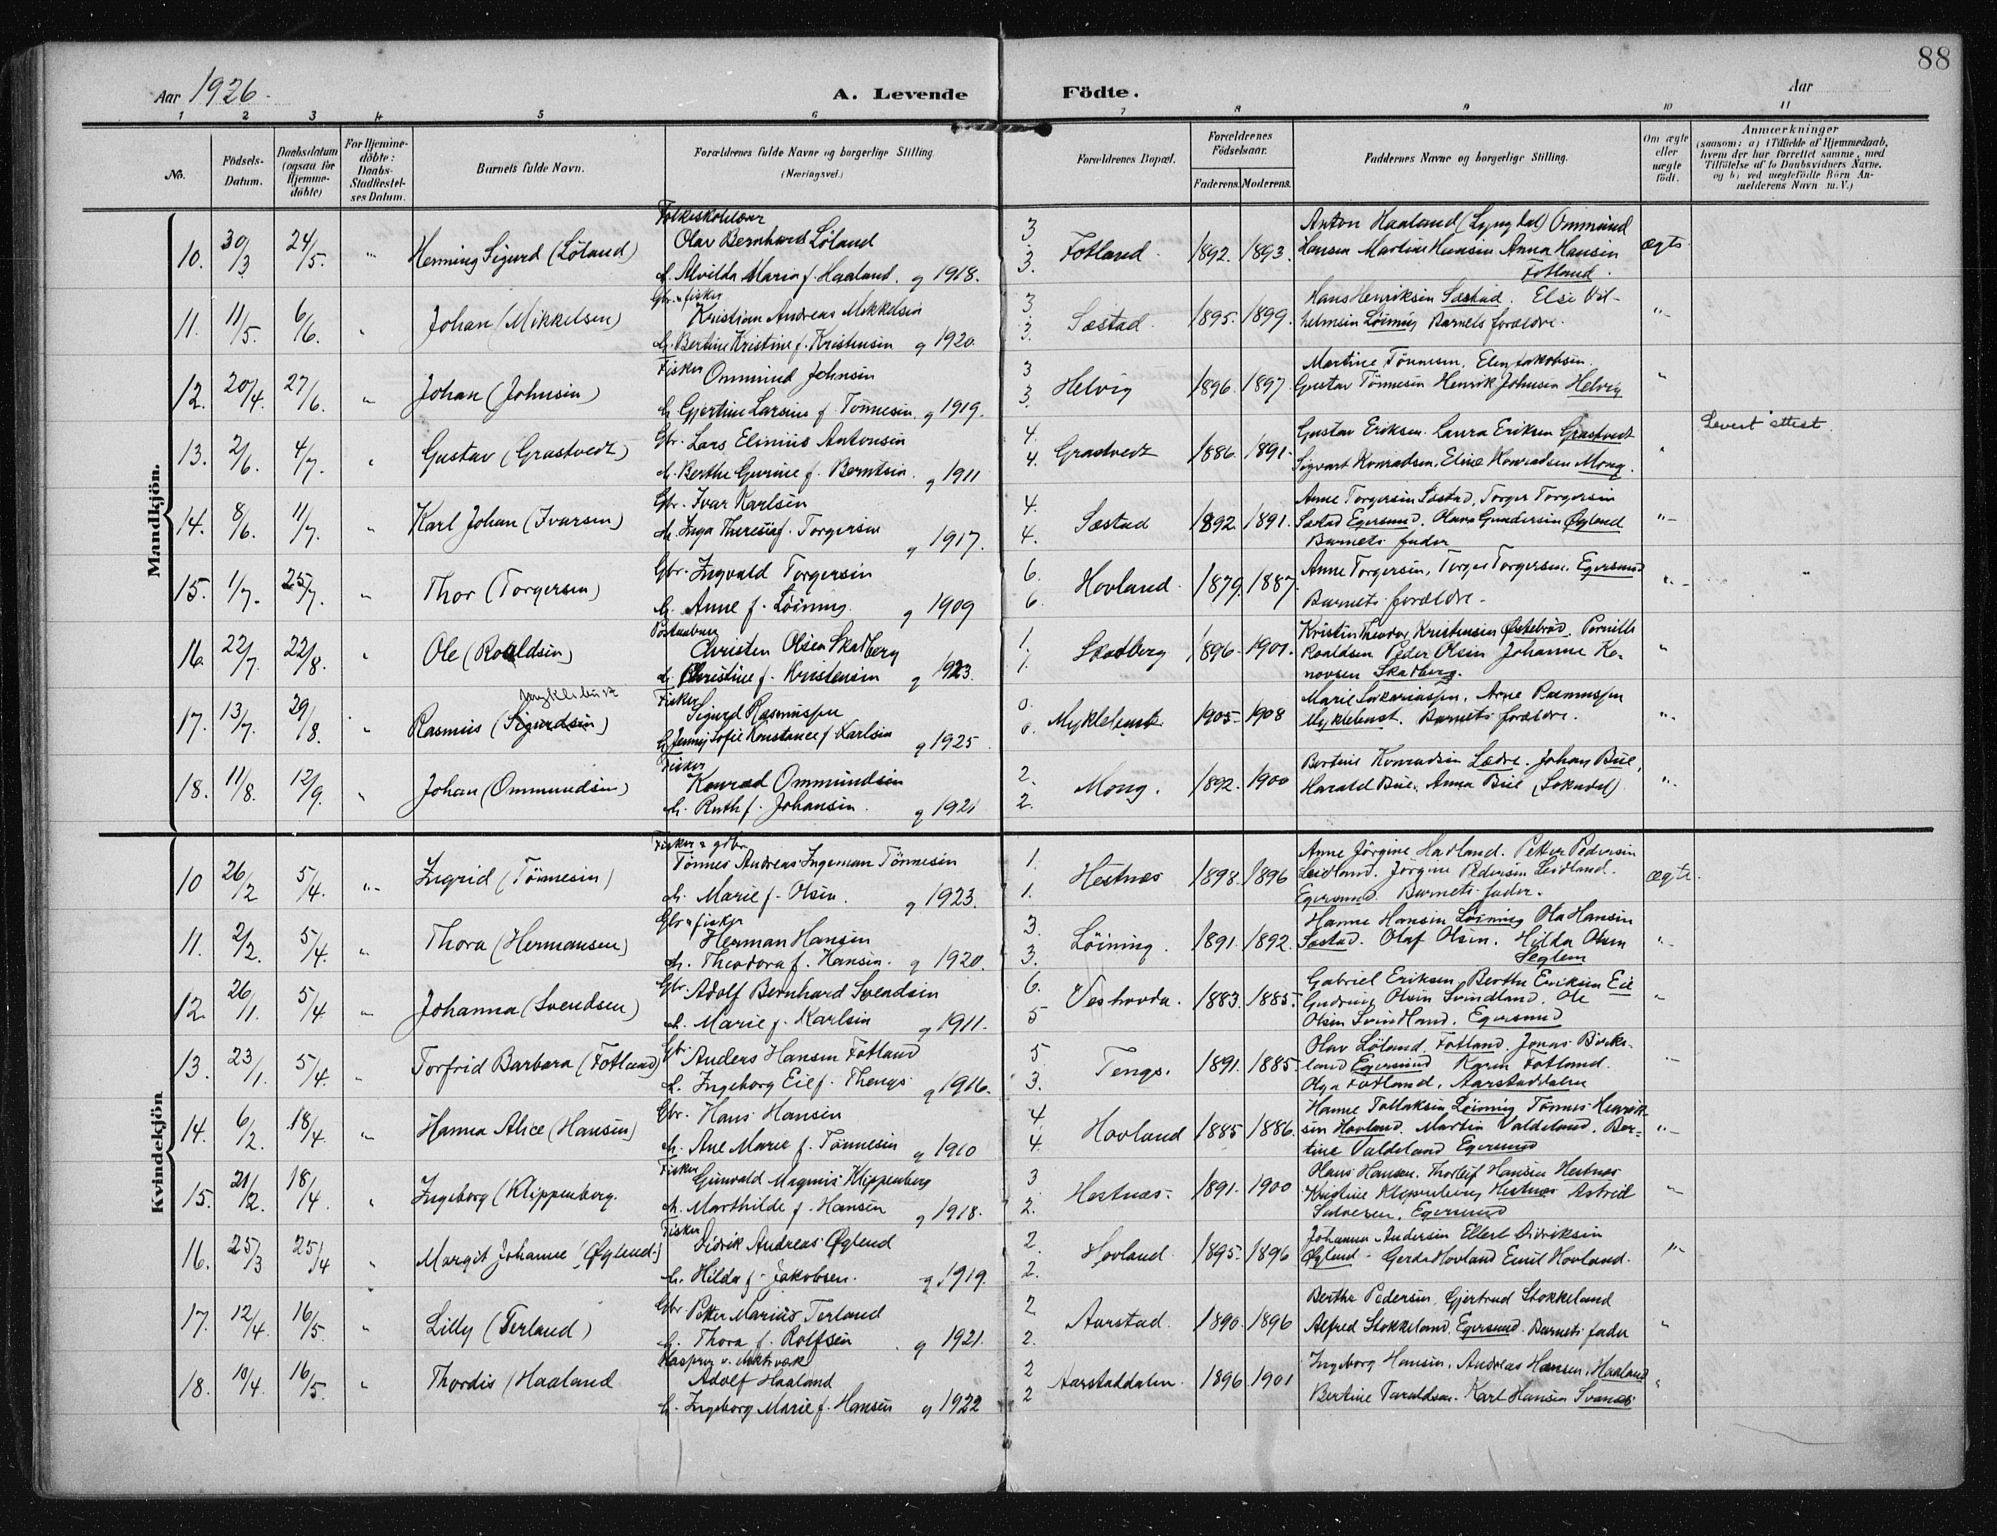 88
Aar 1926.
A. Levende Födte.
Aar
1 2 3 4 5 6 7 8 9 10 11
No.
Födsels-Datum.
Daabsdatum (ogsaa for Hjemme-döbte)
For Hjemme-döbte: Daabs-Stadfæstel-ses Datum.
Barnets fulde Navn.
Forældrenes fulde Navne og borgerlige Stilling. (Næringsvei.)
Forældrenes Bopæl.
Forældrenes Födselsaar.
Faderens. Moderens.
Faddernes Navne og borgerlige Stilling.
Om ægte eller uægte födt.
Anmærkninger
(saasom: a) i Tilfælde af Hjemmedaab, hvem der har forrettet samme, med Tilföielse af to Daabsvidners Navne. og b) ved uægtefödte Börn An-melderens Navn m. V.)
Mandkjön.
Folkeskolelærer
10. 30/3 24/5. Henning Sigurd (Löland) Olav Bernhard Löland
h. Alvilda Maria f. Haaland. g 1918.
3 3. 3. Fotland. 1892. 1893.
Anton Haaland (Lyngdal) Ommund
Hansen Martine Hansen Anna Hansen
Fotland.
ægte
Gbr. & fisker
11. 11/5. 6/6. Johan (Mikkelsen) Kristian Andreas Mikkelsen
h. Bertine Kristine f. Kristensen g 1920.
3 3. 3. Sæstad. 1895. 1899.
Hans Henriksen Sæstad. Else Vil-
helmsen Löining Barnets forældre.
Fisker
12. 20/4. 27/6. Johan (Johnsen) Ommund Johnsen
h. Gjertine Larsine f. Tönnesen. g 1919.
3 3. Helvig 1896. 1897.
Martine Tönnesen. Elen Jakobsen.
Gustav Tönnesen Henrik Johnsen Helvig
13. 2/6. 4/7. Gustav (Grastvedt) Gbr. Lars Elinius Antonsen
h. Berthe Gurine f. Berntsen. g 1911
4. 4 Grastvedt 1886. 1891.
Gustav Eriksen. Laura Eriksen Grastvedt
Sigvart Konradsen. Eline Konradsen Mong.
Levert attest.
14. 8/6. 11/7. Karl Johan (Ivarsen) Gbr. Ivar Karlsen
h. Inga Theresia f. Torgersen g 1917.
4. 4. Sæstad 1892. 1891.
Anne Torgersen Sæstad, Torger Torgersen
Sæstad Egersund. Olava Gundersen Øglend
Barnets fader
15. 1/7. 25/7. Thor (Torgersen) Gbr. Ingvald Torgersen
h. Anne f. Löining. g 1909
6. 6. Hovland. 1879. 1887.
Anne Torgersen, Torger Torgersen. Egersund
Barnets forældre.
16. 22/7. 22/8. Ole (Roaldsen) Christen Olsen Skadberg
h. Christine f. Kristensen g 1923.
1. 1. Skadberg 1896. 1901.
Kristin Theodor Kristensen Østebrød. Pernille
Roaldsen Peder Olsen Johanne Ko-
novsen Skadberg.
Myklebust
Fisker
17. 13/7. 29/8. Rasmus (Sigurdsen) Sigurd Rasmussen
h. Jenny Sofie Konstance f. Karlsen g 1925.
0. 0. Myklebust. 1905. 1908
Marie Sakariassen, Arne Rasmussen
Myklebust. Barnets forældre.
Fisker
18. 11/8. 12/9. Johan (Ommundsen) Konrad Ommundsen
h. Ruth f. Johansen. g 1921
2. 2. Mong. 1892. 1900
Bertine Konradsen Lædre. Johan Bue,
Harald Bue. Anna Bue (Sokndal)
Kvindekjön
Fisker & gdbr.
10 26/2 5/4. Ingrid (Tönnesen) Tönnes Andreas Ingeman Tönnesen
h. Marie f. Olsen. g 1923.
1. 1. Hestnæs 1898. 1896
Anne Jörgine Hadland. Petter Pedersen
Leidland. Jörgine Pedersen Leidland.
Egersund. Barnets fader.
ægte.
Gbr & fisker
11. 2/2. 5/4. Thora (Hermansen) Herman Hansen
h. Theodora f. Hansen. g 1920.
3. 3. Löining. 1891. 1892.
Hanne Hansen Löining Ola Hansen
Sæstad. Olaf Olsen. Hilda Olsen
Seglem
12. 26/1. 5/4 Johanna (Svendsen) Gbr. Adolf Bernhard Svendsen
h. Marie f. Karlsen g 1911.
6. 5 Veshovda. 1883. 1885.
Gabriel Eriksen, Berthe Eriksen Eie
Gudrun Olsen Svindland. Ole
Olsen Svindland. Egersund
13. 23/1. 5/4. Torfrid Barbara (Fotland) Gbr. Anders Hansen Fotland
h. Ingeborg Eie f. Thengs g 1916.
5 3. Tengs. 1891. 1885
Olav Löland. Fotland. Jonas Birke-
land Egersund Karen Fotland.
Olga Fotland, Aarstaddalen
14. 6/2. 18/4. Hanna Alice (Hansen) Gbr. Hans Hansen
h. Ane Marie f. Tönnesen g 1910
4. 4. Hovland 1885 1886.
Hanne Tollaksen Löining Tönnes Henrik-
sen Hovland. Martin Valdeland. Ber-
tine Valdeland Egersund
Fisker
15. 21/2. 18/4. Ingeborg (Klippenberg. Gunvald Magnus Klippenberg
h. Marthilde f. Hansen g 1918.
3 2. Hestnæs. 1891. 1900
Hans Hansen. Thorleif Hansen Hestnes
Kristine Klippenberg Hestnes Astrid
Salvesen, Egersund
Fisker
16. 25/3 25/4 Margit Johanne (Øglend.) Didrik Andreas Øglend
h. Hilda f. Jakobsen. g 1919.
2. 2. Hovland. 1895. 1896
Johanna Andersen Ellert Didriksen
Øglend - Gerda Hovland Emil Hovland.
17. 12/4. 16/5. Lilly (Terland) Gbr Petter Marius Terland
h. Thora f. Rolfsen. g 1921.
2 2. Aarstad. 1890. 1896
Berthe Pedersen. Gjertrud Stokkeland
Alfred Stokkeland. Egersund. Barnets fader
18. 10/4. 16/5. Thordis (Haaland Adolf Haaland
h. Ingeborg Marie f. Hansen g 1922
2 2 Aarstaddalen 1896 1901
Ingeborg Hansen. Andreas Hansen. Haaland
Bertine Taraldsen. Karl Hansen Svanes